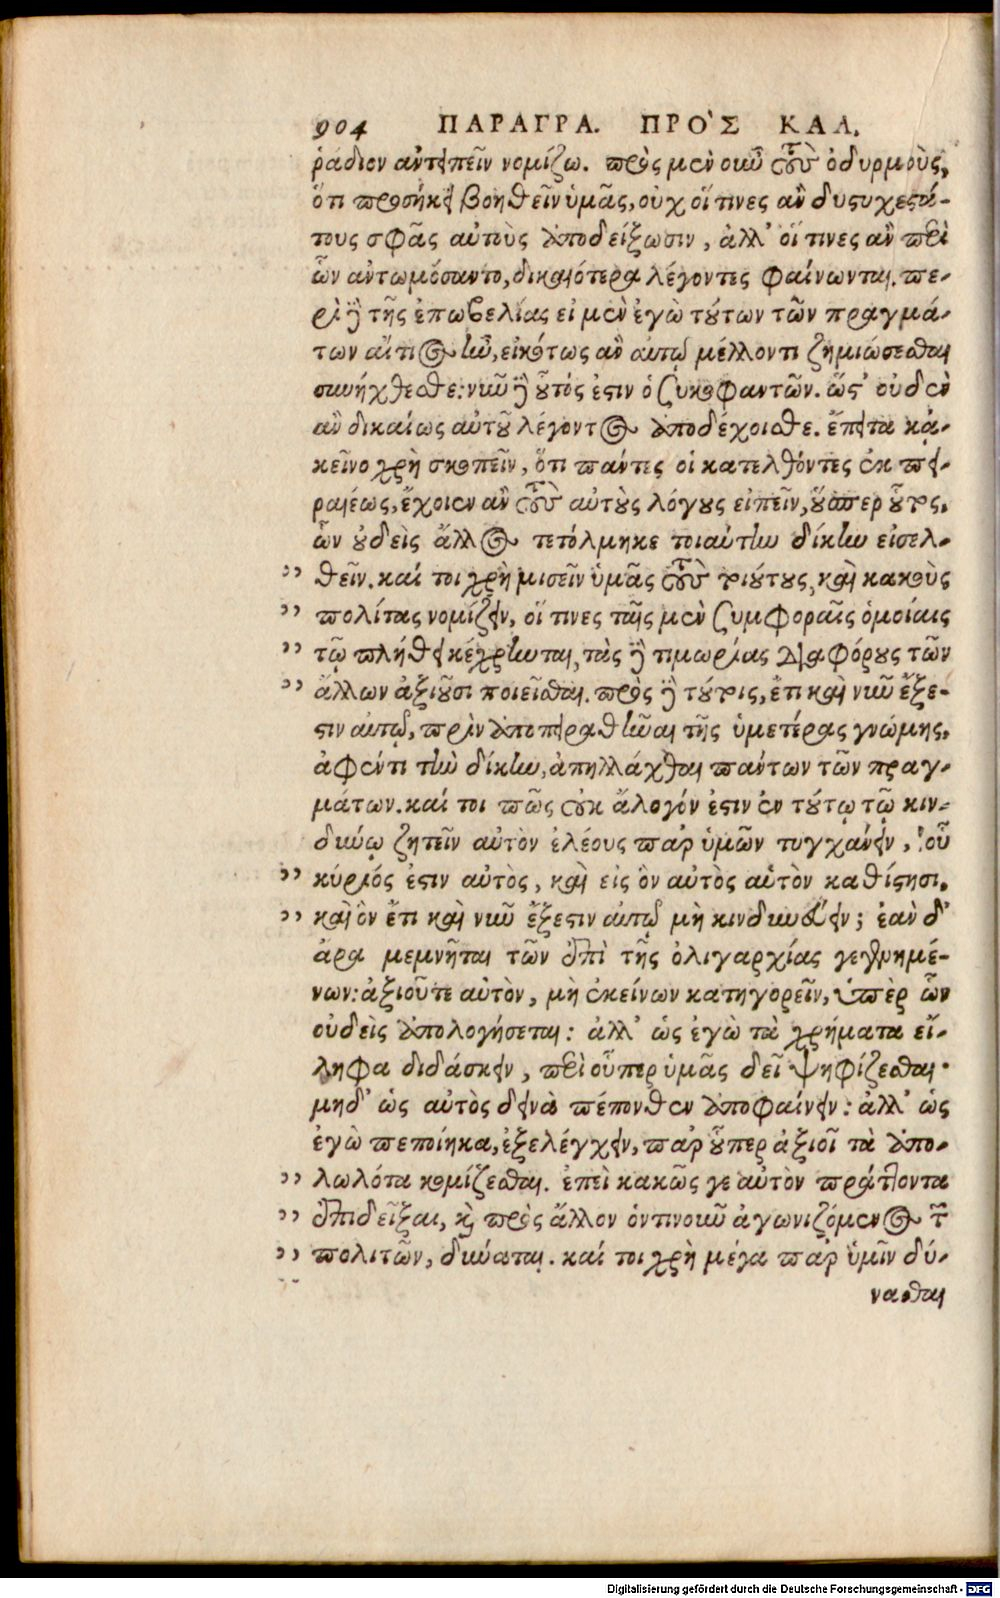 904 ΠΑΡΑΓΡΑ. ΠΡΟ'Σ ΚΑΛ.
ῥάδιον ἀντειπεῖν νομίζω. πρὸς μὲν οὖν τοὺς ὀδυρμοὺς,
ὅτι προσήκει βοηθεῖν ὑμᾶς, οὐχ οἵ τινες ἂν δυςυχεςά-
τους σφᾶς αὐτοὺς ἀποδείξωσιν, ἀλλ' οἵ τινες ἂν περὶ
ὧν ἀντωμόσαντο, δικαιότερα λέγοντες φαίνωνται. πε-
ρὶ δὲ τῆς ἐπωβελίας εἰ μὲν ἐγὼ τούτων τῶν πραγμά-
των αἴτιος ἦν, εἰκότως ἂν αὐτῷ μέλλοντι ζημιώσεσθαι
συνήχθεσθε: νῦν δὲ οὗτός ἐςιν ὁ συκοφαντῶν. ὥς' οὐδὲν
ἂν δικαίως αὐτοῦ λέγοντος ἀποδέχοισθε. ἔπειτα κἀ-
κεῖνο χρὴ σκοπεῖν, ὅτι πάντες οἱ κατελθόντες ἐκ πει-
ραιέως, ἔχοιεν ἂν τοὺς αὐτοὺς λόγους εἰπεῖν, οὕσπερ οὗτος,
ὧν οὐδεὶς ἄλλος τετόλμηκε τοιαύτην δίκην εἰσελ-
" θεῖν. καί τοι χρὴ μισεῖν ὑμᾶς τοὺς τοιούτους, καὶ κακοὺς
" πολίτας νομίζειν, οἵ τινες ταῖς μὲν συμφοραῖς ὁμοίαις
" τῷ πλήθει κέχρηνται, τὰς δὲ τιμωρίας διαφόρους τῶν
" ἄλλων ἀξιοῦσι ποιεῖσθαι. πρὸς δὲ τούτοις, ἔτι καὶ νῦν ἔξε-
ςιν αὐτῷ, πρὶν ἀποπειραθῆναι τῆς ὑμετέρας γνώμης,
ἀφέντι τὴν δίκην, ἀπηλλάχθαι πάντων τῶν πραγ-
μάτων. καί τοι πῶς οὐκ ἄλογόν ἐςιν ἐν τούτῳ τῷ κιν-
δύνῳ ζητεῖν αὐτὸν ἐλέους παρ' ὑμῶν τυγχάνειν, οὗ
" κύριός ἐςιν αὐτὸς, καὶ εἰς ὃν αὐτὸς αὑτὸν καθίςησι,
" καὶ ὃν ἔτι καὶ νῦν ἔξεςιν αὐτῷ μὴ κινδυνεύειν; ἐὰν δ'
ἄρα μεμνῆται τῶν ἐπὶ τῆς ὀλιγαρχίας γεγενημέ-
νων: ἀξιοῦτε αὐτὸν, μὴ ἐκείνων κατηγορεῖν, ὑπὲρ ὧν
οὐδεὶς ἀπολογήσεται: ἀλλ' ὡς ἐγὼ τὰ χρήματα εἴ-
ληφα διδάσκειν, περὶ οὗπερ ὑμᾶς δεῖ ψηφίζεσθαι.
μηδ' ὡς αὐτὸς δεινὰ πέπονθεν ἀποφαίνειν: ἀλλ' ὡς
ἐγὼ πεποίηκα, ἐξελέγχειν, παρ' οὗπερ ἀξιοῖ τὰ ἀπο-
" λωλότα κομίζεσθαι. ἐπεὶ κακῶς γε αὐτὸν πράττοντα
" ἐπιδεῖξαι, καὶ πρὸς ἄλλον ὁντινοῦν ἀγωνιζόμενος τῶν
" πολιτῶν, δύναται. καί τοι χρὴ μέγα παρ' ὑμῖν δύ-
νασθαι
Digitalisierung gefördert durch die Deutsche Forschungsgemeinschaft - DFG